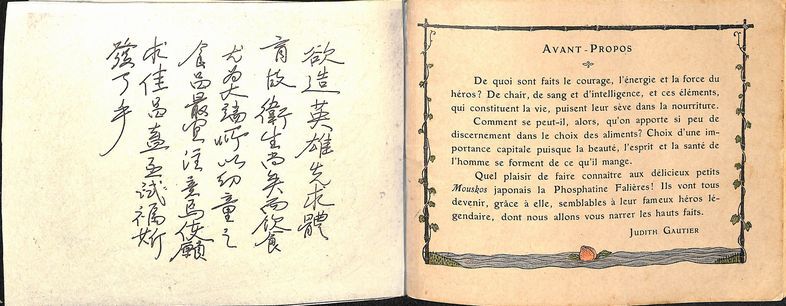 欲造英雄先求體
育故衛生尚矣而飲食
尤為大端所以幼童之
食品最宜注意焉使願
求佳品盍亟試福斯
發丁乎
AVANT-PROPOS
De quoi sont faits le courage, l'énergie et la force du
héros? De chair, de sang et d'intelligence, et ces éléments,
qui constituent la vie, puisent leur sève dans la nourriture.
Comment se peut-il, alors, qu'on apporte si peu de
discernement dans le choix des aliments? Choix d'une im-
portance capitale puisque la beauté, l'esprit et la santé de
l'homme se forment de ce qu'il mange.
Quel plaisir de faire connaître aux délicieux petits
Mouskos japonais la Phosphatine Falières! Ils vont tous
devenir, grâce à elle, semblables à leur fameux héros lé-
gendaire, dont nous allons vous narrer les hauts faits.
JUDITH GAUTIER